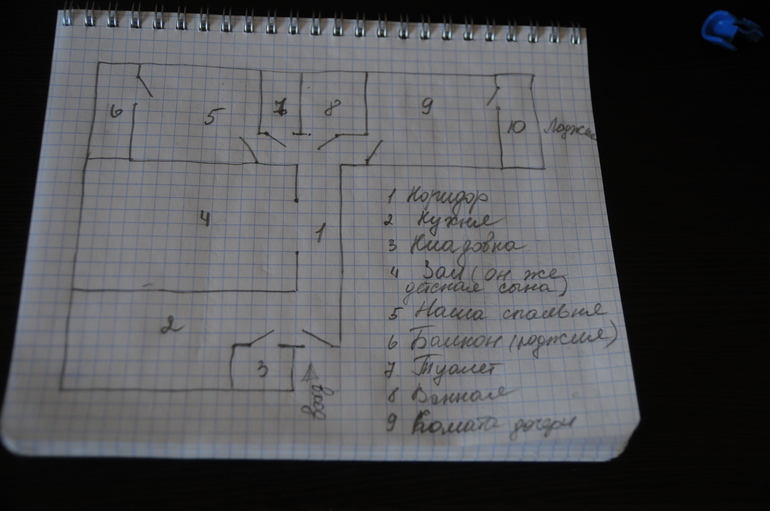 6
5
7
8
9
10 Лоджия
4
1
2
3
вход
1 Коридор
2 Кухня
3 Кладовка
4 Зал (он же
детская сына)
5 Наша спальня
6 Балкон (лоджия)
7 Туалет
8 Ванная
9 Комната дочери